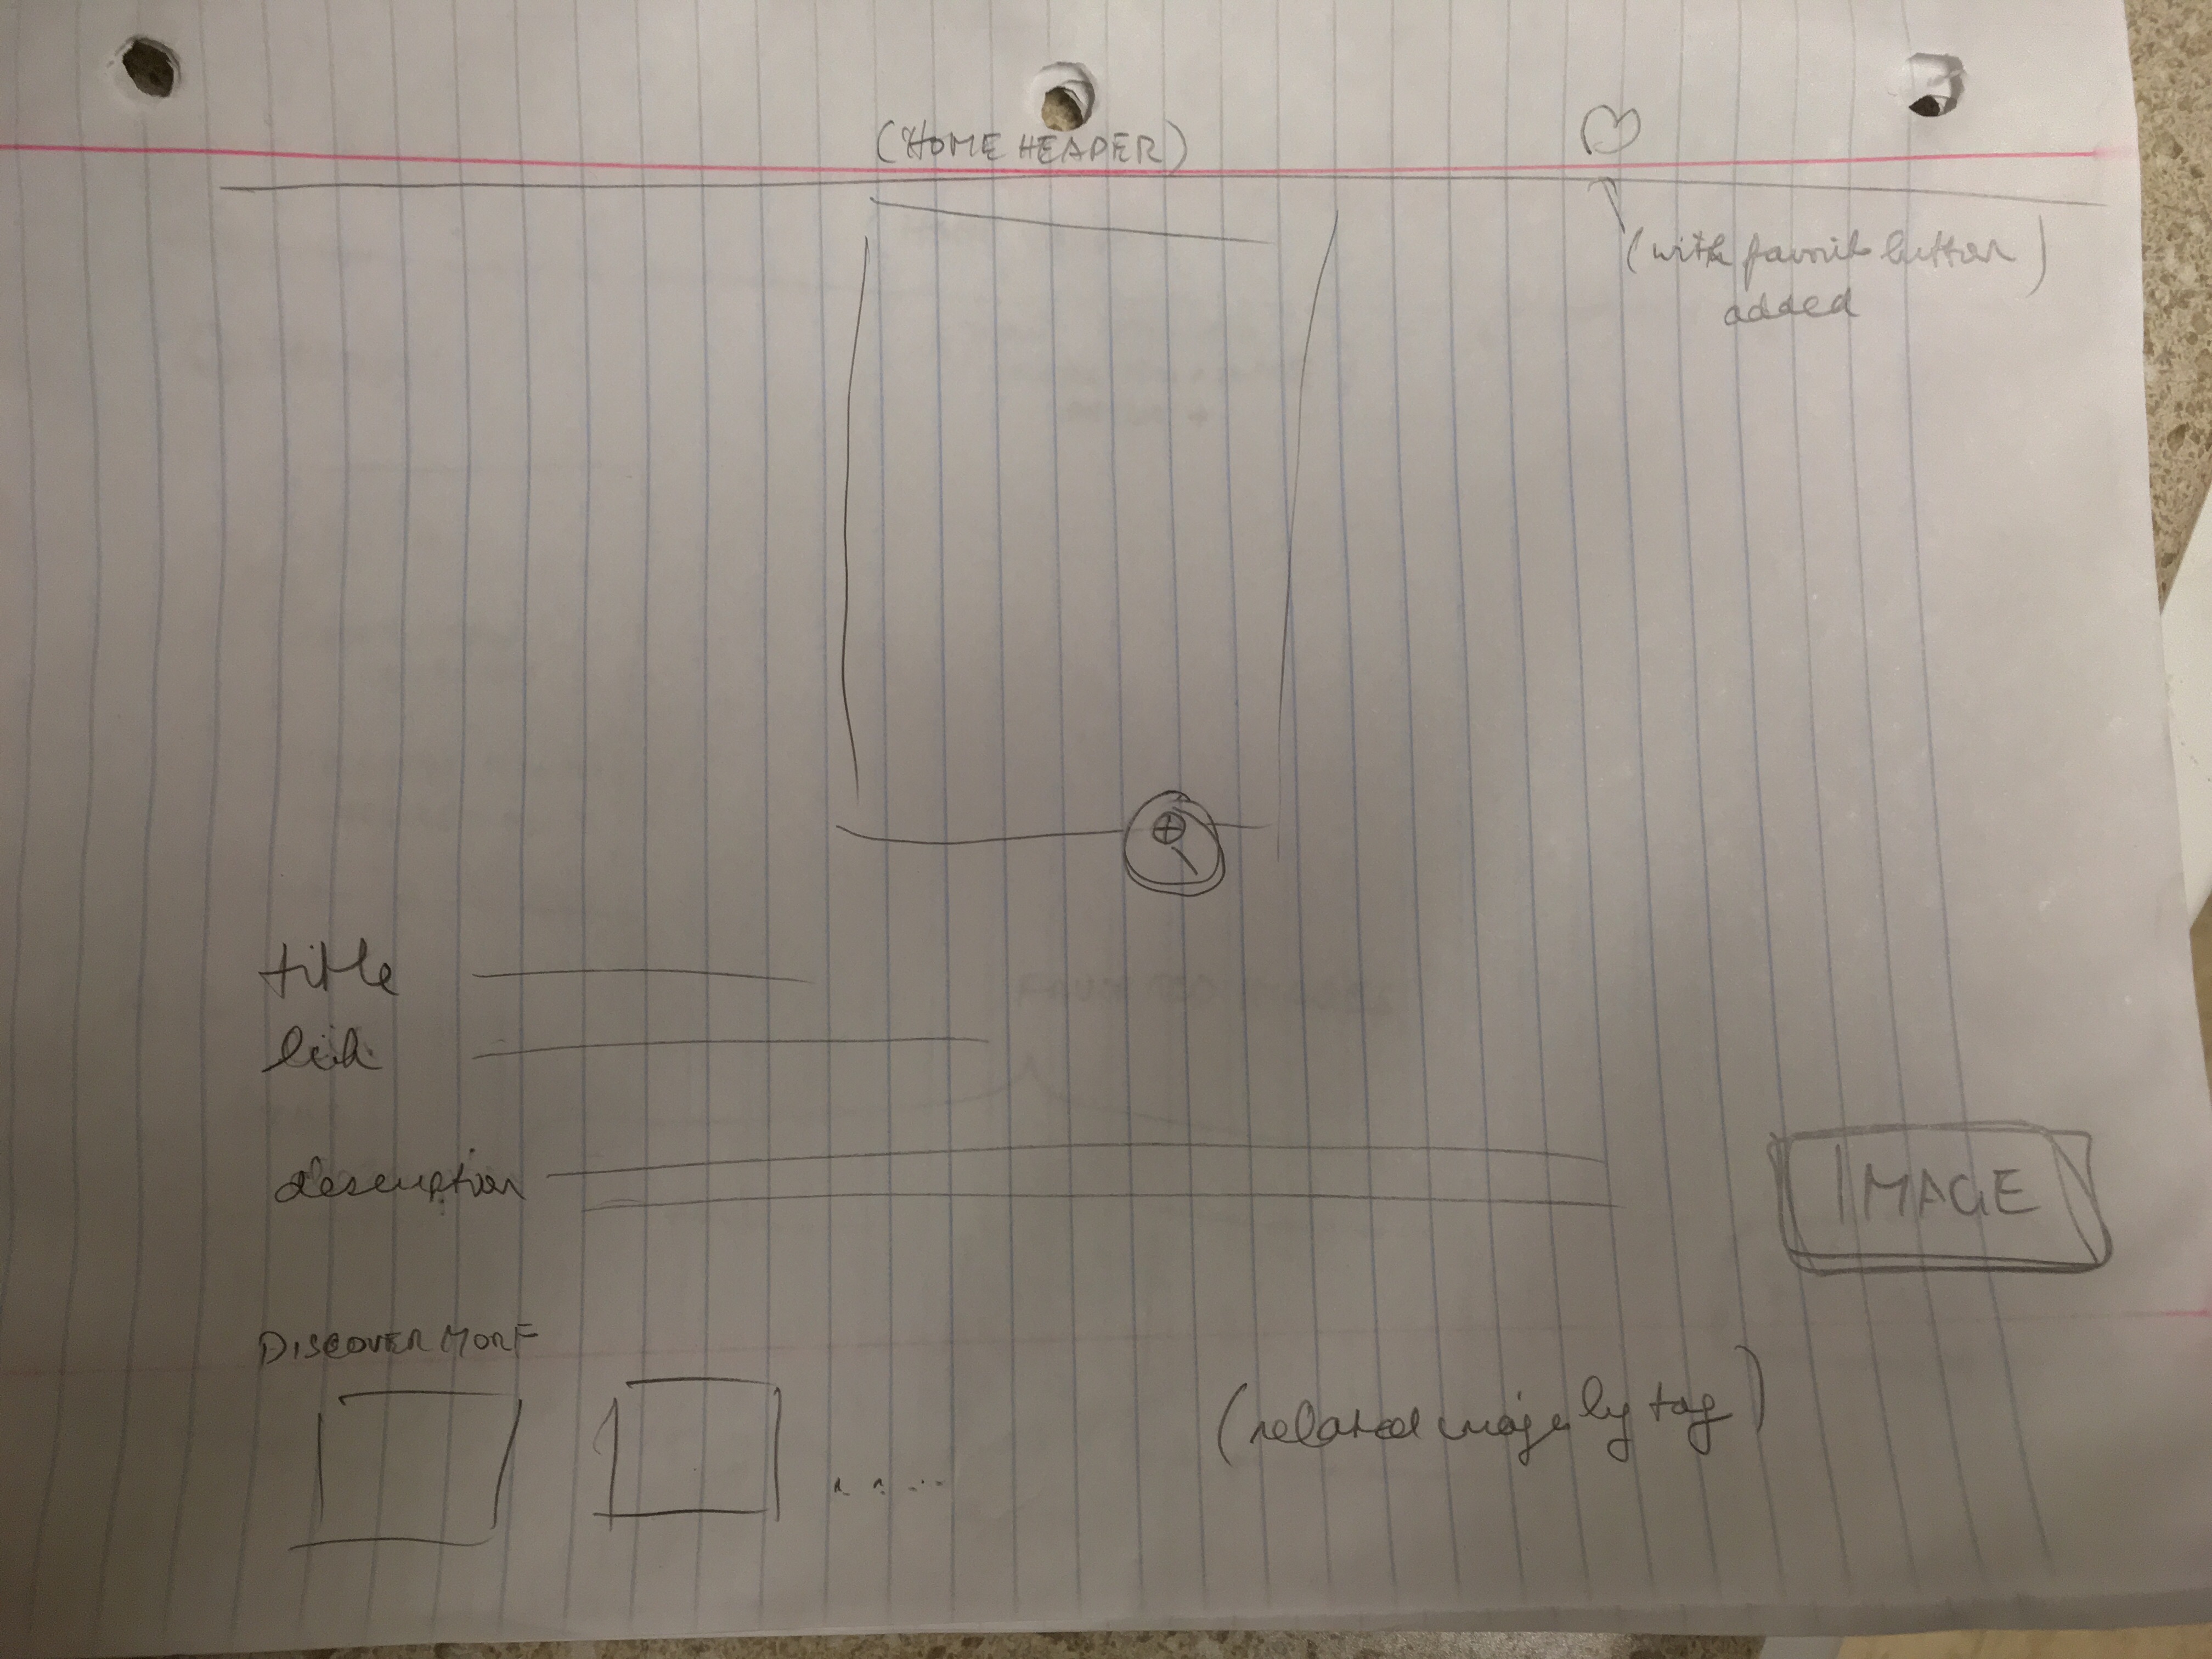 (HOME HEADER)
(with favorite button)
added
title
link
description
IMAGE
DISCOVER MORE
(related image by tag)